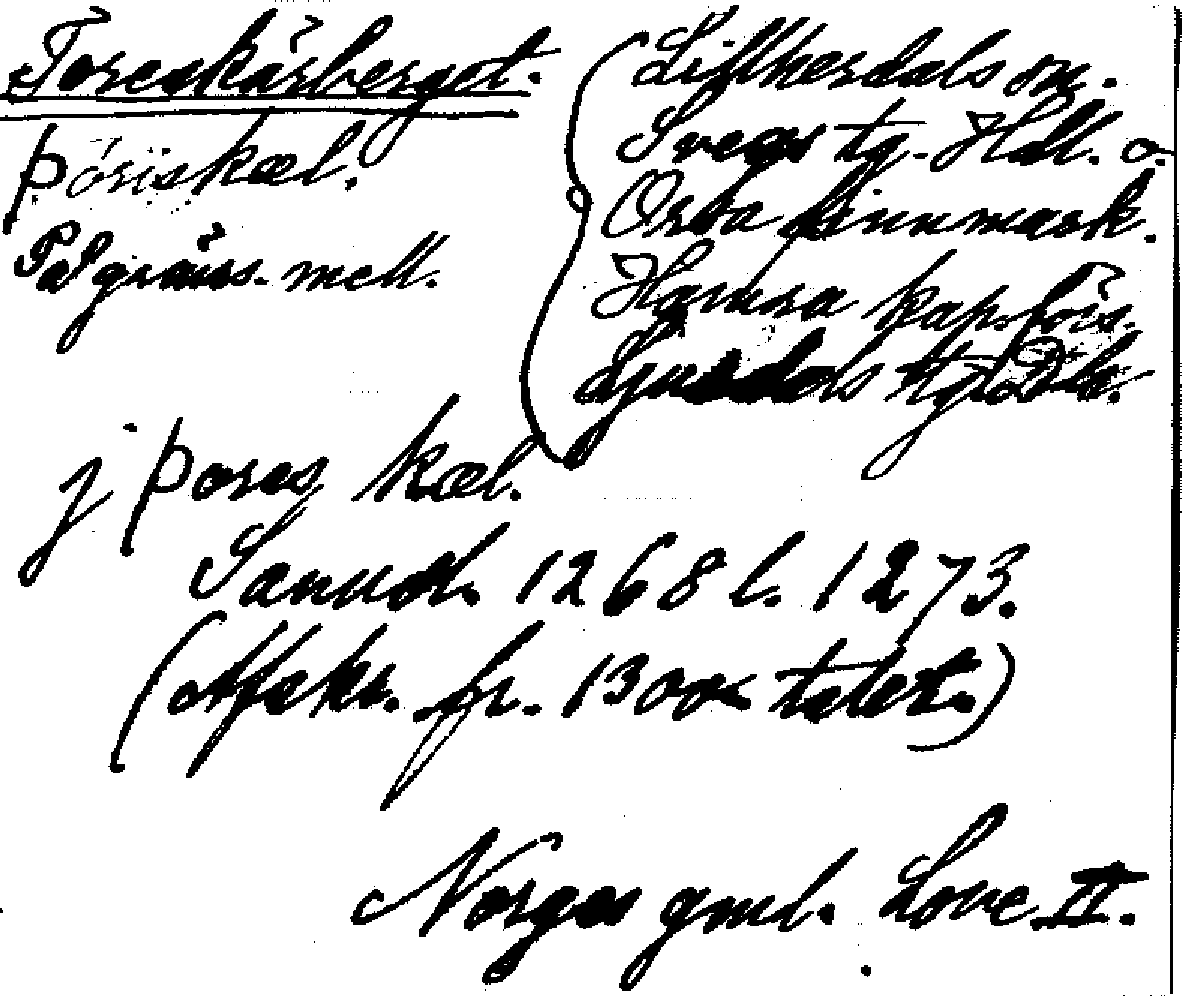 Toreskärberget.
þóriskæl.
På gräns. mell.
Lillherdals sn.
Svegs tg. Hdl. o.
Orsa finnmark.
Hamra kap. förs.
Ljusdals tg.
j þores kæl.
Sannol. 1268 l. 1273.
(Afskr. fr. 1300-talet.)
Norges gml. Love II.